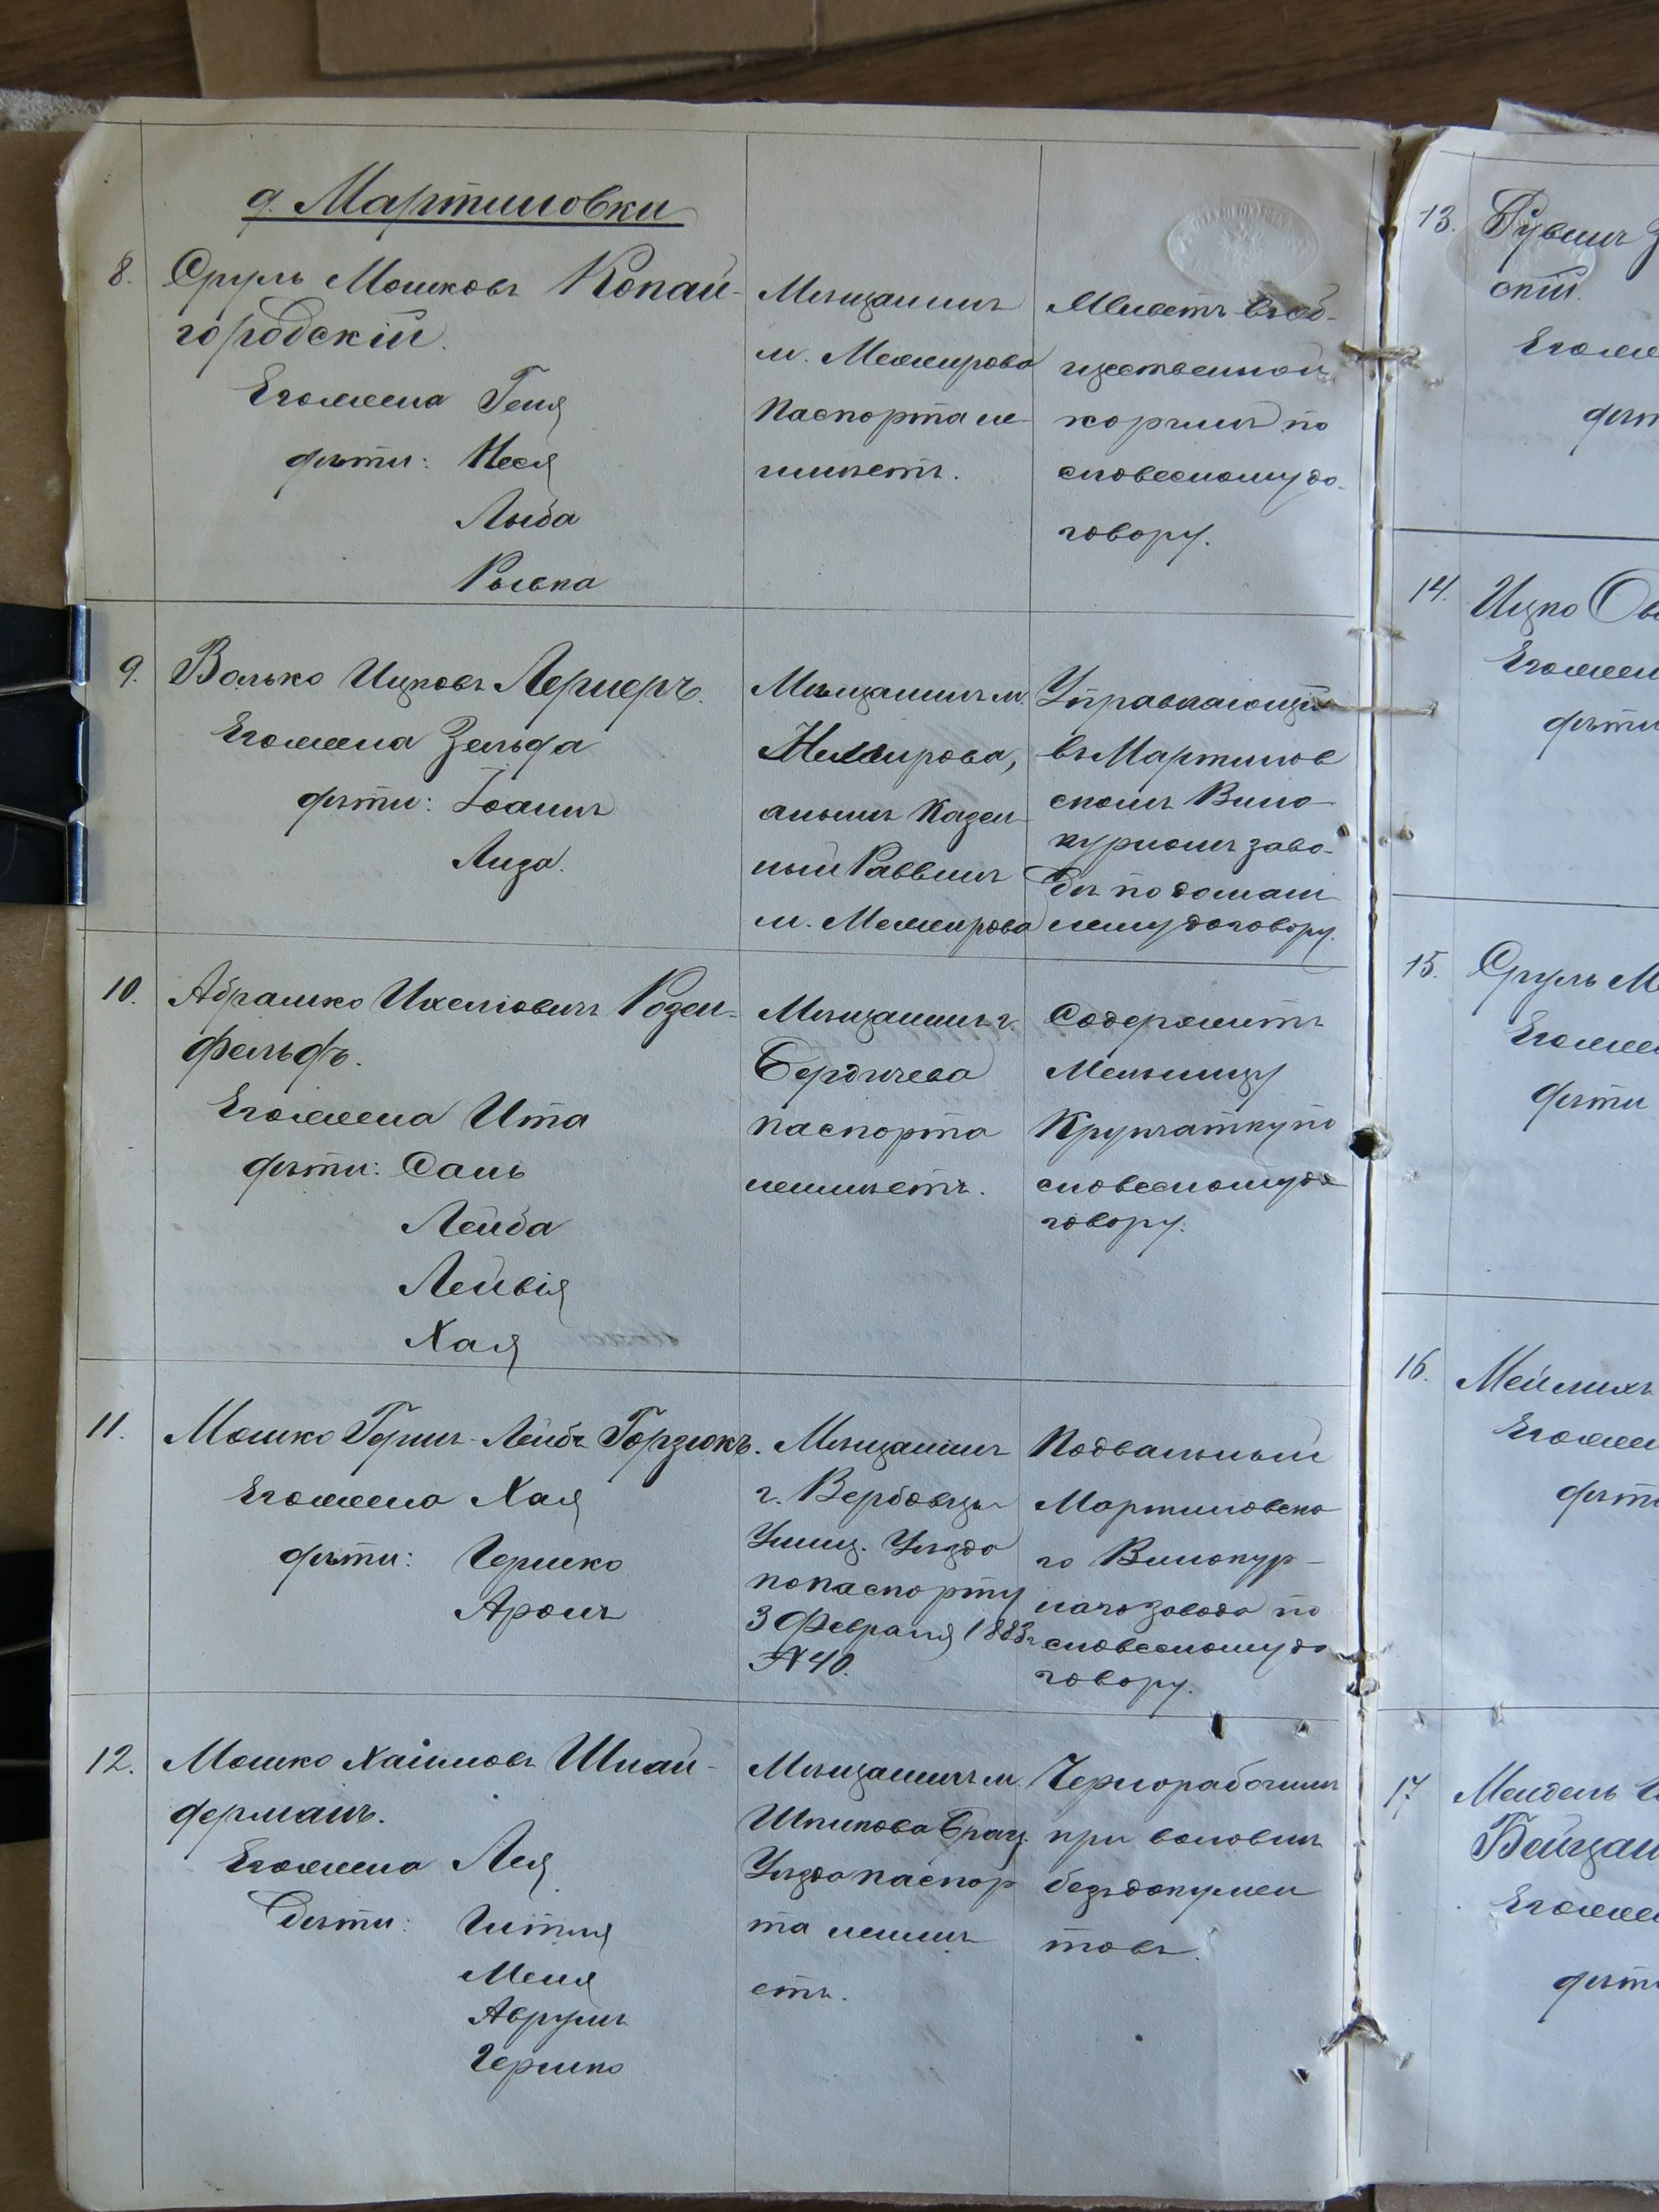 д. Мартиновки
8. Сруль Мошковъ Копай-
городскій.
Его жена Геня
дѣти: Неся
Лыба
Мѣщанинъ
м. Межирова
Паспорта не
имѣетъ.
Живетъ въ об-
щественной
корчмѣ по
словесному до-
говору.
9. Волько Ицковъ Лернеръ.
Его жена Зельда
дѣти: Іоаннъ
Лиза.
Мѣщанинъ м.
Немирова,
нынѣ Казен-
ный Раввинъ
м. Межирова
Управляющій
въ Мартинов
скомъ Вино-
курномъ заво-
дѣ по домаш
нему договору.
10. Абрашко Ихелiовичъ Розен-
фельдъ.
Его жена Ита
дѣти: Сань
Лейба
Лейвія
Хая
Мѣщанинъ г.
Бердичева
паспорта
неимѣетъ.
Содержитъ
Мельницу
Крупчатку по
словесному до
говору.
11. Мошко Гершъ-Лейбъ Горзюкъ.
Его жена Хая
дѣти: Гершко
Аронъ
Мѣщанинъ
г. Вербовца
Ушиц. Уѣзда
по паспорту
3 Февраля 1883 г
№ 40.
Подвальный
Мартиновска
го Винокур-
наго завода по
словесному до
говору.
12. Мошко Хаимовъ Шнай-
дерманъ.
Его жена Лея
Дѣти: Гитля
Меня
Аврумъ
Гершко
Мѣщанинъ м.
Шпикова Брац.
Уѣзда паспор
та неимѣ
етъ.
Чернорабочимъ
при воловнѣ
безъ докумен
товъ.
13. Рувинъ З
скій.
Его же
дѣт
14. Ицко Ов
Его жен
дѣти
15. Сруль М
Его жен
дѣти
16. Мейлихъ
Его жен
дѣти
17 Мендель
Его жен
дѣти